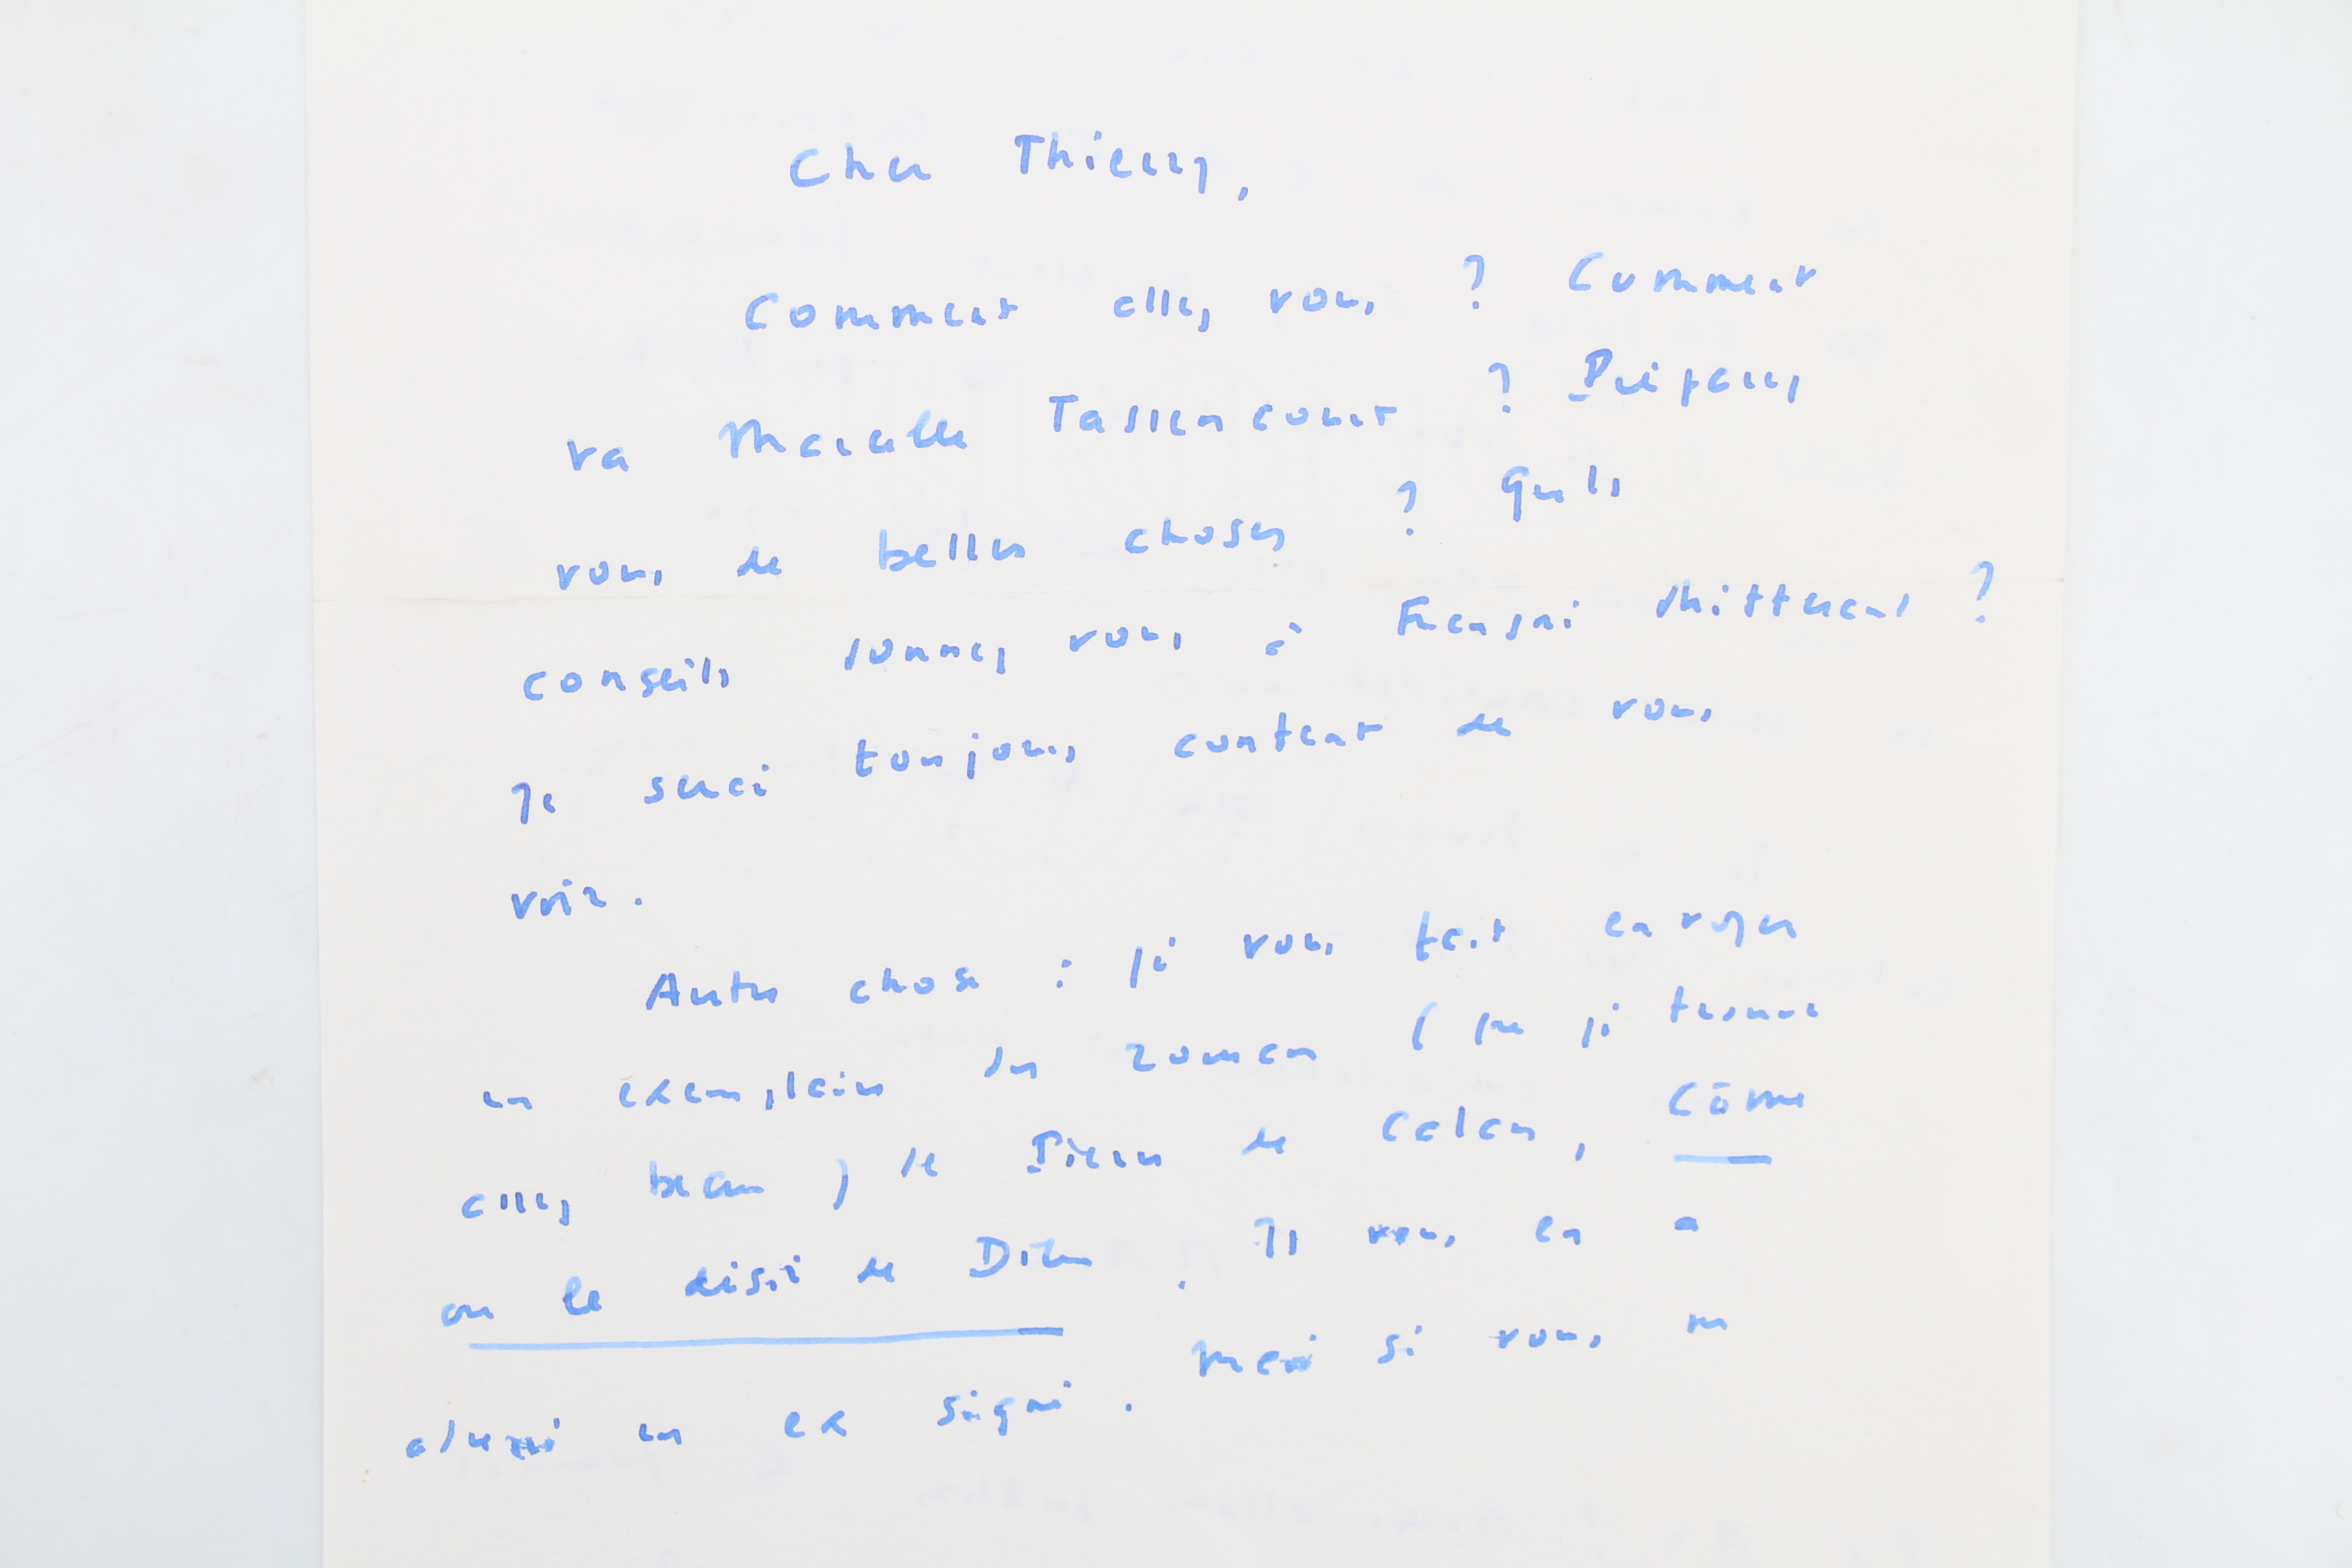 Cher Thierry,
Comment allez vous ? Comment
va Marcelle Tassencourt ? Préparez
vous de belles choses ? Quels
conseils donnez vous à François Mitterrand ?
Je serai toujours content de vous
voir.
Autre chose : j'ai vous fait envoyer
un exemplaire du roman ( que j'ai trouvé
assez beau ) de Pierre de Calan, Côme
ou le désir de Dieu. Il vous en a
adressé un ex signé. Mais si vous m